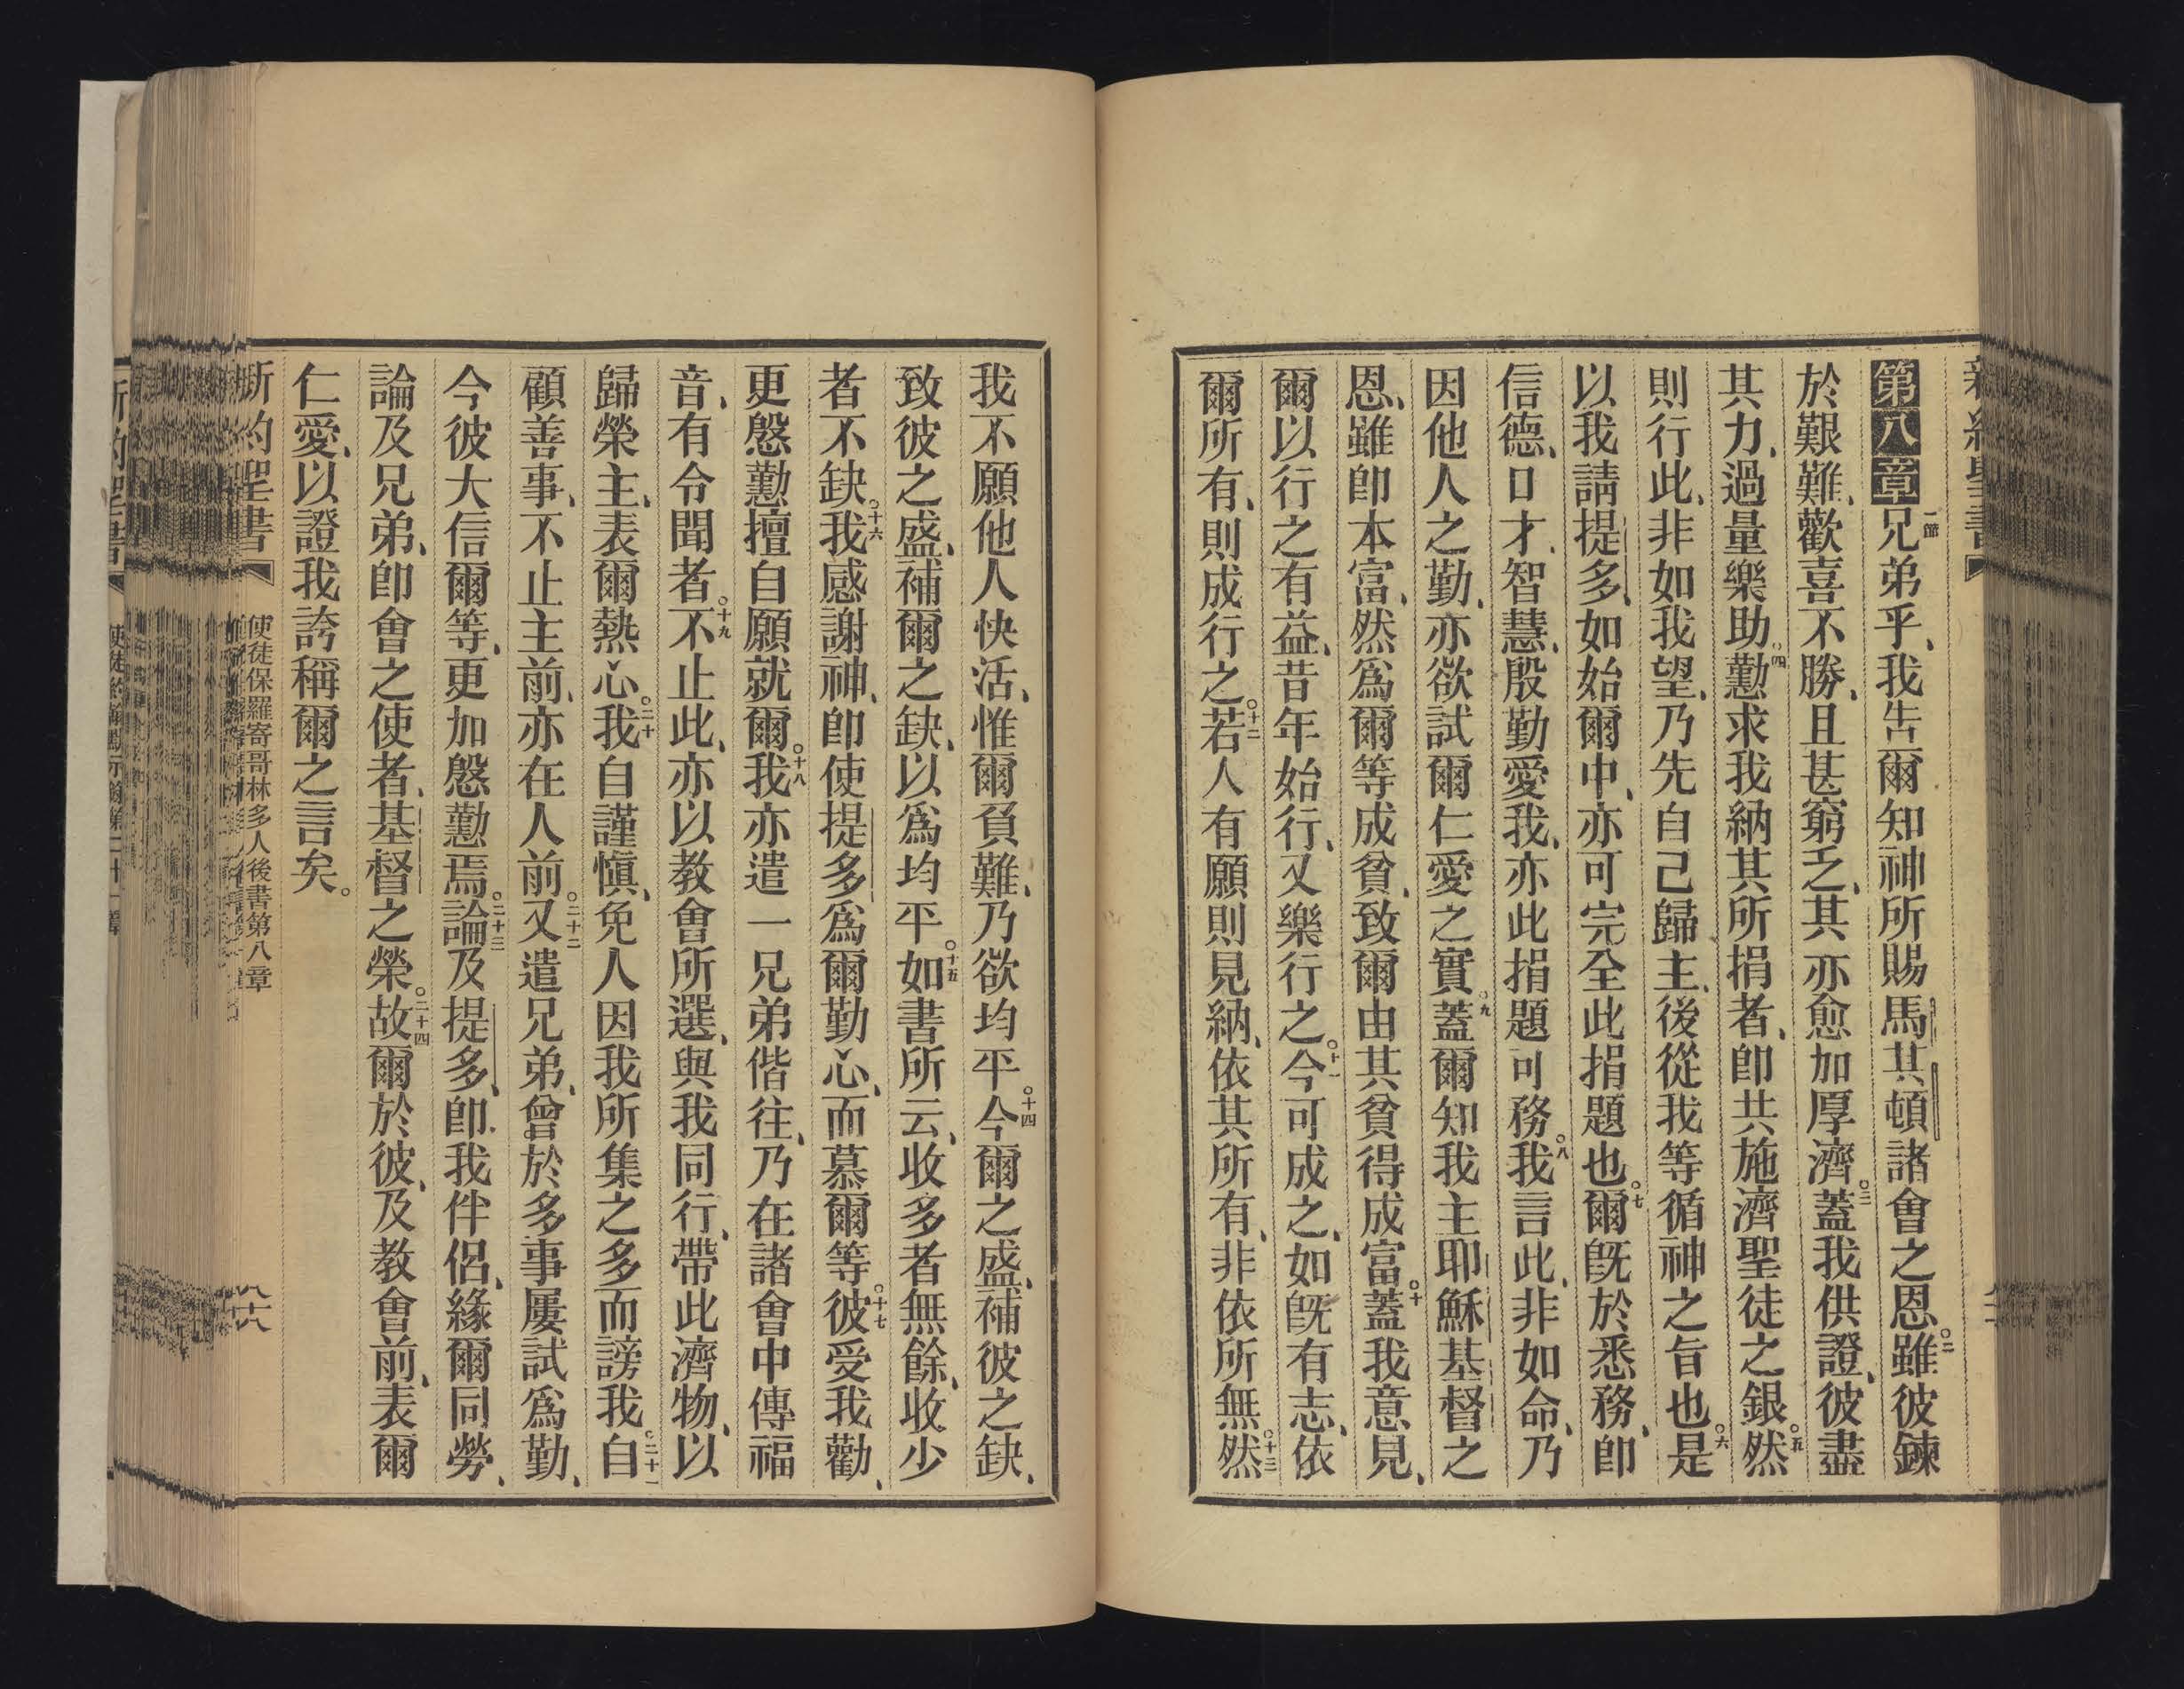 第八章一節兄弟乎、我吿爾知神所賜馬其頓諸會之恩。二雖彼鍊
於艱難、歡喜不勝、且甚窮乏、其亦愈加厚濟。三蓋我供證、彼盡
其力、過量樂助。四懃求我納其所捐者、卽共施濟聖徒之銀。五然
則行此、非如我望、乃先自己歸主、後從我等循神之旨也。六是
以我請提多、如始爾中、亦可完全此捐題也。七爾旣於悉務、卽
信德、口才、智慧、殷勤愛我、亦此捐題可務。八我言此、非如命、乃
因他人之勤、亦欲試爾仁愛之實。九蓋爾知我主耶穌基督之
恩、雖卽本富、然爲爾等成貧、致爾由其貧得成富。十蓋我意見、
爾以行之有益、昔年始行、又樂行之。十一今可成之、如旣有志、依
爾所有、則成行之。十二若人有願則見納、依其所有、非依所無。十三然
我不願他人快活、惟爾負難、乃欲均平。十四今爾之盛、補彼之缺、
致彼之盛、補爾之缺、以爲均平。十五如書所云、收多者無餘、收少
者不缺。十六我感謝神、卽使提多爲爾勤心、而慕爾等。十七彼受我勸、
更慇懃擅自願就爾。十八我亦遣一兄弟偕往、乃在諸會中傳福
音、有令聞者。十九不止此、亦以教會所選、與我同行、帶此濟物、以
歸榮主、表爾熱心。二十我自謹愼、免人因我所集之多而謗我。二十一自
顧善事、不止主前、亦在人前。二十二又遣兄弟、曾於多事屢試爲勤、
今彼大信爾等、更加慇懃焉。二十三論及提多、卽我伴侶、緣爾同勞、
論及兄弟、卽會之使者、基督之榮。二十四故爾於彼、及教會前、表爾
仁愛、以證我誇稱爾之言矣。
新約聖書 使徒保羅寄哥林多人後書第八章